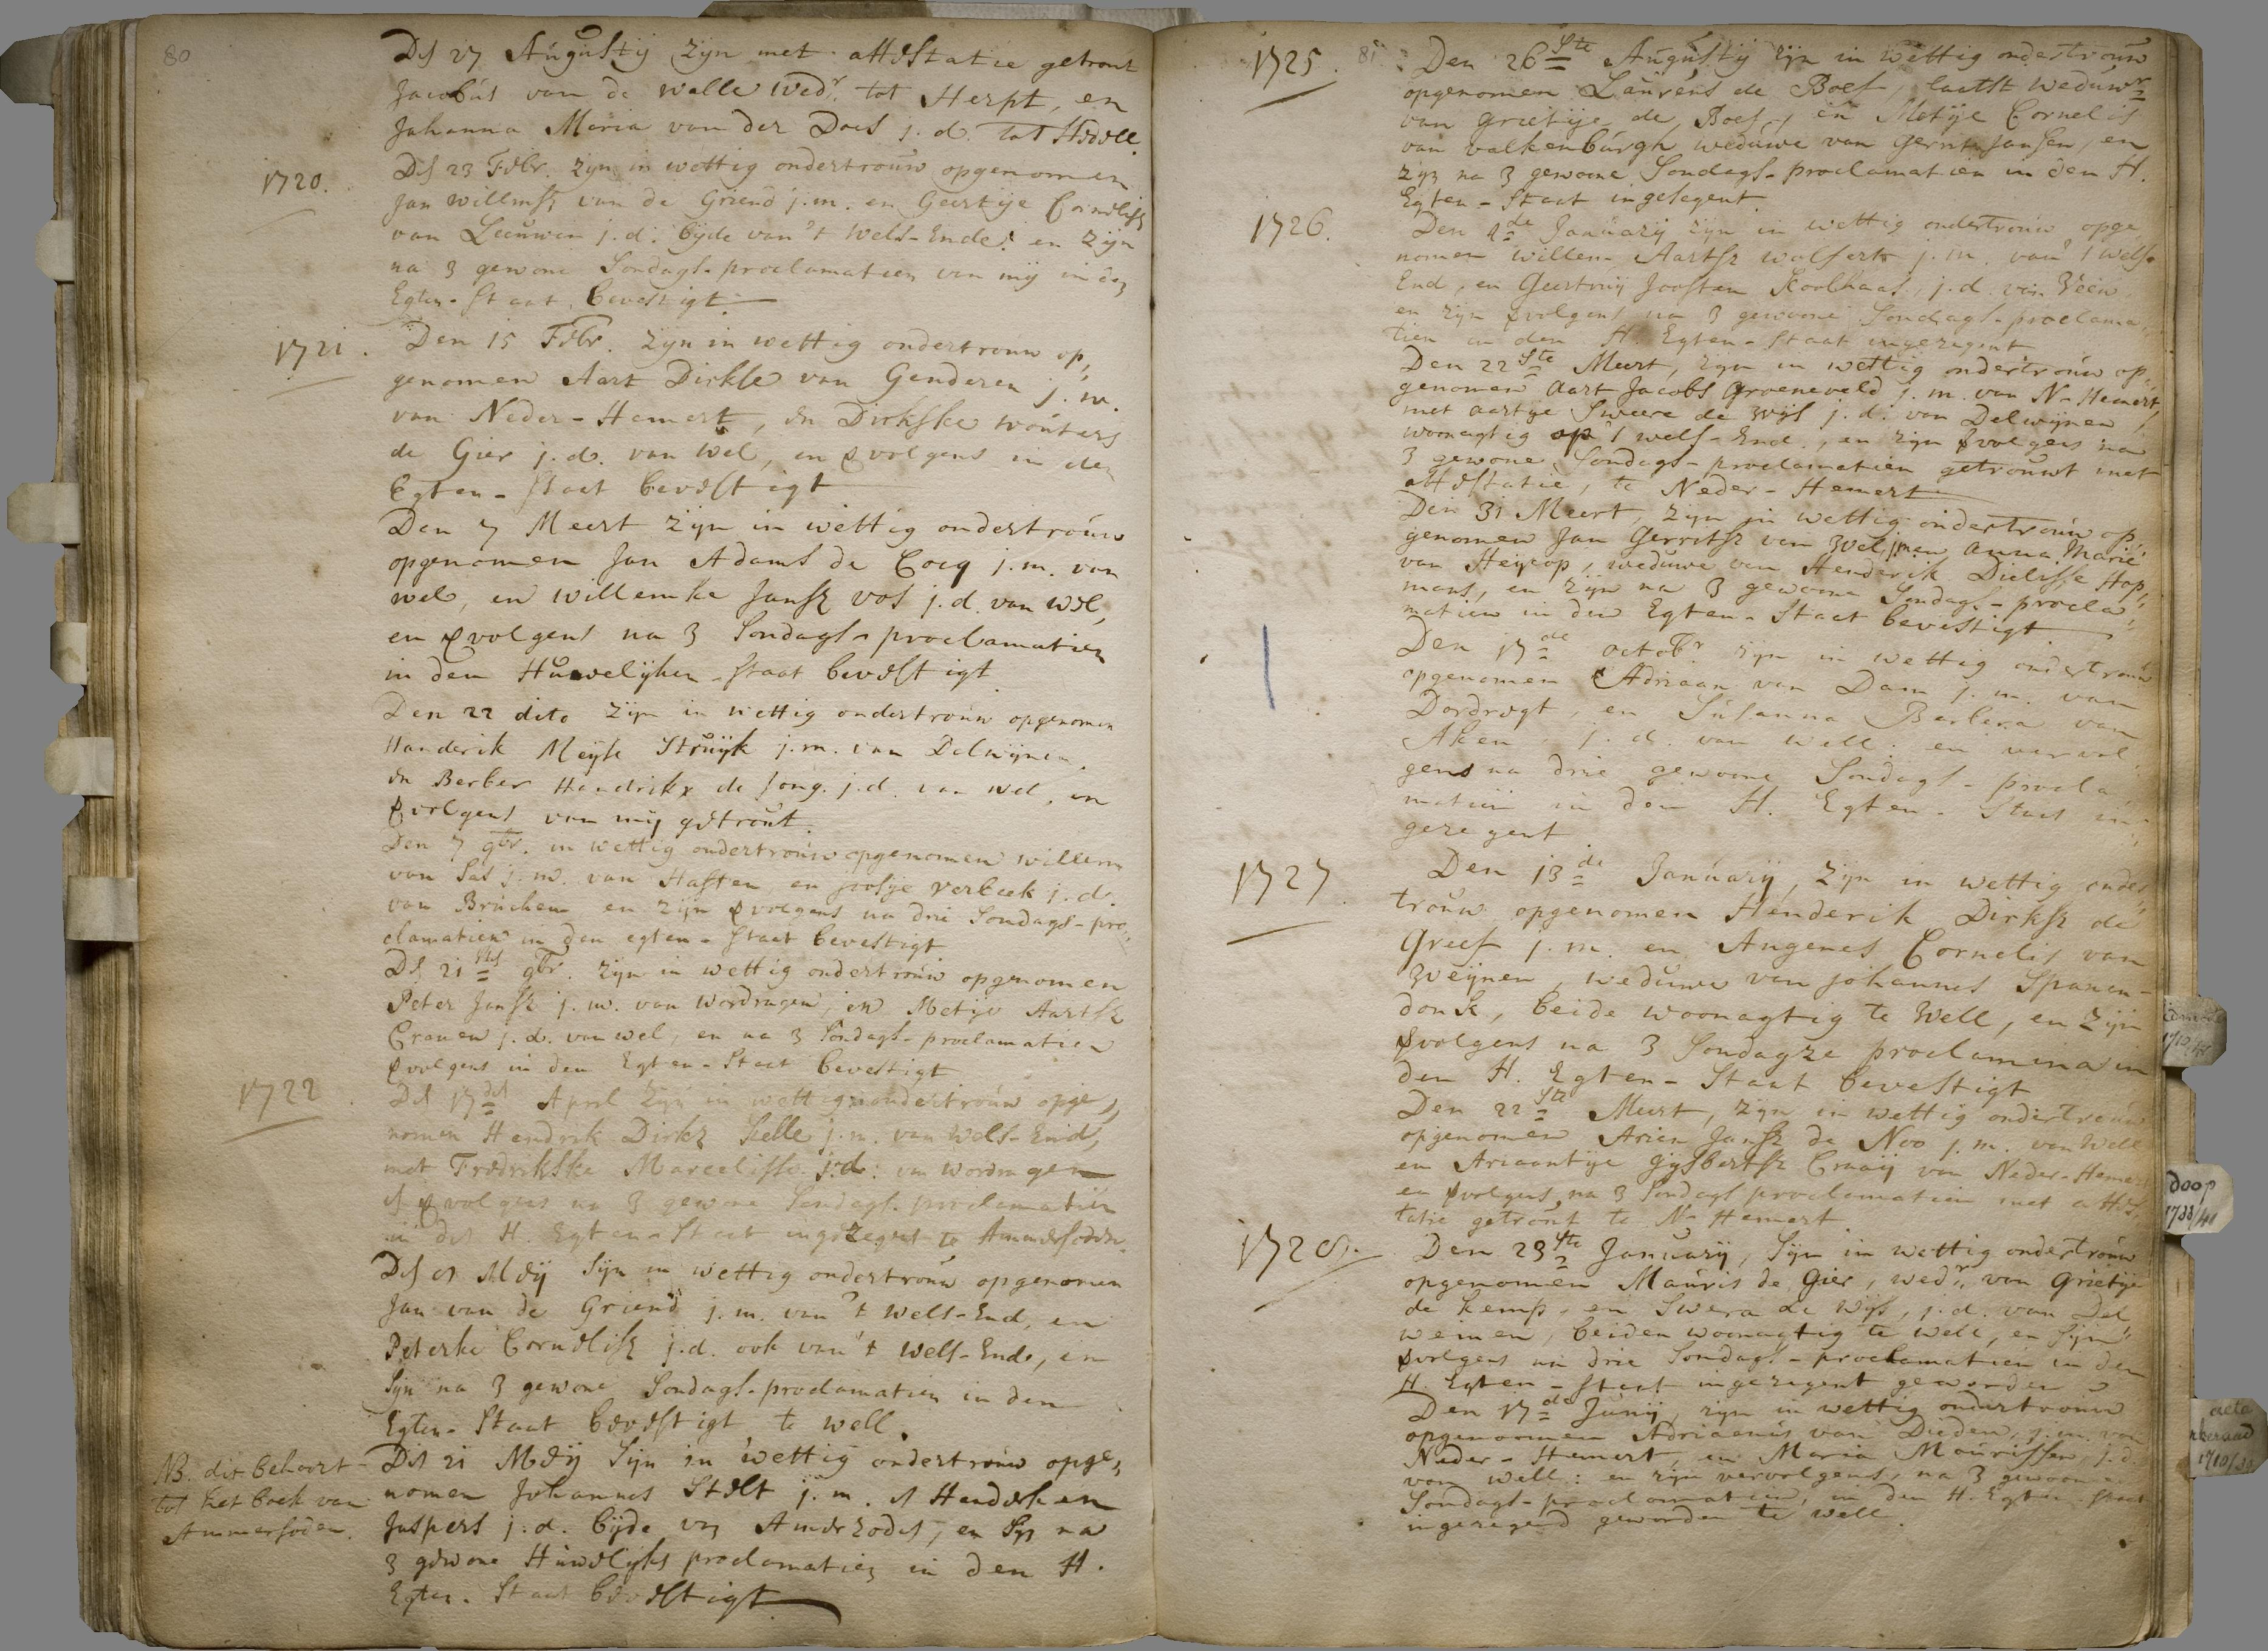 80
Des 27 Augustij zijn met attestatie getrout
Jacobus van de walle wedr. tot Herpt, en
Johanna Maria van der Does j.d. tot Hedell.
1720.
Des 23 Febr. zijn in wettig ondertrouw opgenomen
Jan willemsz van de Griend j.m. en Geertije Cornelisz
van Leeuwen j.d. bijde van 't Wels-Ende: en zijn
na 3 gewone Sondags-proclamatien van mij in den
Egten-Staat bevestigt
1721.
Den 15 Febr. zijn in wettig ondertrouw op,,
genomen Aart Dirkse van Genderen j.m.
van Neder-Hemert, en Dirkske wouters
de Gier j.d. van wel, en volgens in den
Egten-Staat bevestigt
Den 7 Meert zijn in wettig ondertrouw
opgenomen Jan Adams de Cocq j.m. van
wel, en willemke Jansz vos j.d. van wel,
en volgens na 3 Sondags-proclamatien
in den Huwelijken-Staat bevestigt
Den 22 dito zijn in wettig ondertrouw opgenomen
Handerik Meijse Struijk j.m. van Delwijnen.
en Berber Hendrikx de Jong. j.d. van wel, en
volgens van mij getrout.
Den 7 9br. in wettig ondertrouw opgenomen willem
van Sas j.m. van Haften, en josije verbeek j.d.
van Bruchem en zijn volgens na drie Sondags-pro,,
clamatien in den egten-Staat bevestigt
Des 21stes 9br. zijn in wettig ondertrouw opgenomen
Peter Jansz j.m. van wordragen, en Metije Aartsz
Cranen j.d. van wel, en na 3 Sondags-proclamatien
volgens in den Egten-Staat bevestigt
1722.
Des 17des April zijn in wettig ondertrouw opge,,
nomen Hendrik Dirkz Selle j.m. van Wels-Eind,
met Fredrikske Marcelisse j.d: van wordragen
volgens na 3 gewone Sondags-proclamatien
in des H. Egten-Staat ingezegent te Ammersoden.
Des Meij Sijn in wettig ondertrouw opgenomen
Jan van de Griend j.m. van 't Wels-End, en
Peterke Cornelisz j.d. ook van 't Wels-Ende, en
Sijn na 3 gewone Sondags-proclamatien in den
Egten-Staat bevestigt te well.
NB. dit behoort
tot het boek van
Ammersoden.
Des 21 Meij Sijn in wettig ondertrouw opge,,
nomen Johannes Stelt j.m. Hendersken
Juspers j.d. bijde van Amerzoden, en Sijn na
3 gewone Huwelijks proclamatien in den H.
Egten-Staat bevestigt
1725.
81
Den 26ste Augustij zijn in wettig ondertrouw
opgenomen Laurens de Boef, laatst weduwr
van grietije de Boef, en Metije Cornelis
van valkenburgh weduwe van Gerrit Jansen, en
zijn na 3 gewoone Sondags-proclamatien in den H.
Egten-Staat ingesegent.
1726.
Den 2de Januarij zijn in wettig ondertrouw opge,,
nomen willem Aartsz wolfert j.m. van 't wels-
End, en Geertruij Joosten Koolhaas, j.d. van Veen
en zijn volgens na 3 gewoone Sondags-proclama,,
tien in den H. Egten-Staat ingezegent
Den 22ste Meert, zijn in wettig ondertrouw op,,
genomen Aart Jacobs Groeneveld j.m. van N-Hemert,
met aartije Sweere de wijs j.d. van Delwijnen,
woonagtig op 't wels-End, en zijn volgens na
3 gewone Sondags-proclamatien getrouwt met
attestatie, te Neder-Hemert
Den 31 Meert, zijn in wettig ondertrouw op,,
genomen Jan Gerritsz van j.m. en Anna Marie
van Heijcop, weduwe van Henderik Dielisse Hop,,
mans, en zijn na 3 gewoone Sondags-procla,,
matien in den Egten-Staat bevestigt
Den 17de octobr zijn in wettig ondertrouw
opgenomen Adriaan van Dam j.m. van
Dordregt, en Susanna Barbera van
Aken j.d. van well: en vervol,,
gens na drie gewoone Sondags-procla,,
matien in den H. Egten-Staat in,,
gezegent
1727.
Den 13de Januarij, zijn in wettig onder,,
trouw opgenomen Henderik Dirksz de
Greef j.m. en Angenes Cornelis van
Zweijnen, weduwe van Johannes Spanen-
donk, beide woonagtig te Well, en zijn
volgens na 3 Sondagze proclamina in
den H. Egten-Staat bevestigt
Den 22ste Meert, zijn in wettig ondertrouw
opgenomen Arien Jansz de Noo j.m. van Well
en Ariaantije Gijsbertsz Craaij van Neder-Hemert
en volgens na 3 Sondags proclamatien met attes,,
tatie getrout te N-Hemert.
1728.
Den 23ste Januarij, Sijn in wettig ondertrouw
opgenomen Mauris de Gier, wedr. van Grietije
de kemp, en Swera de wijs, j.d. van Del,,
weinen, beiden woonagtig te well, en sijn
volgens na drie Sondags-proclamatien in den
H. Egten-Staat ingezegent geworden
Den 17de Junij, zijn in wettig ondertrouw
opgenomen Adriaanus van Dieden, j.m. van
Neder-Hemert, en Maria Maurissen, j.d.
van well: en zijn vervolgens, na 3 gewoone
Sondags-proclamatien, in den H. Egten-Staat
ingezegend geworden te well.
doop
1733/41
acta
kerkeraad
1710/30